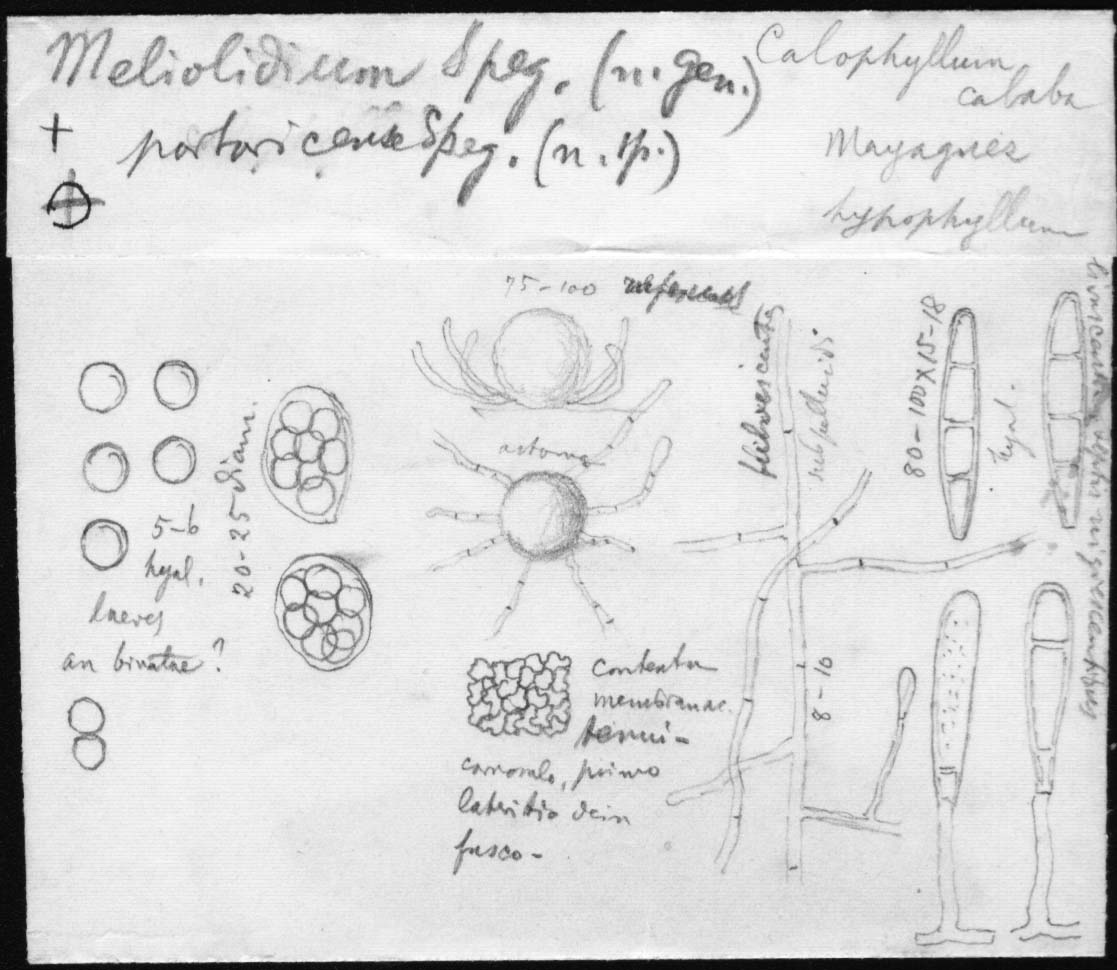 Meliolidium Speg. (n. gen.)
portoricense Speg. (n. sp.)
Calophyllum
calaba
Mayaguez
hypophyllum
75-100 rufescens
astoma
5-6
hyal.
laeves
an binatae?
20-25 diam.
contextu
membranac.
tenui-
carnosulo, primo
lateritio dein
fusco-
fulvescentes
subpellucidi
8-10
80-100 x 15-18
hyal.
nigrescentibus